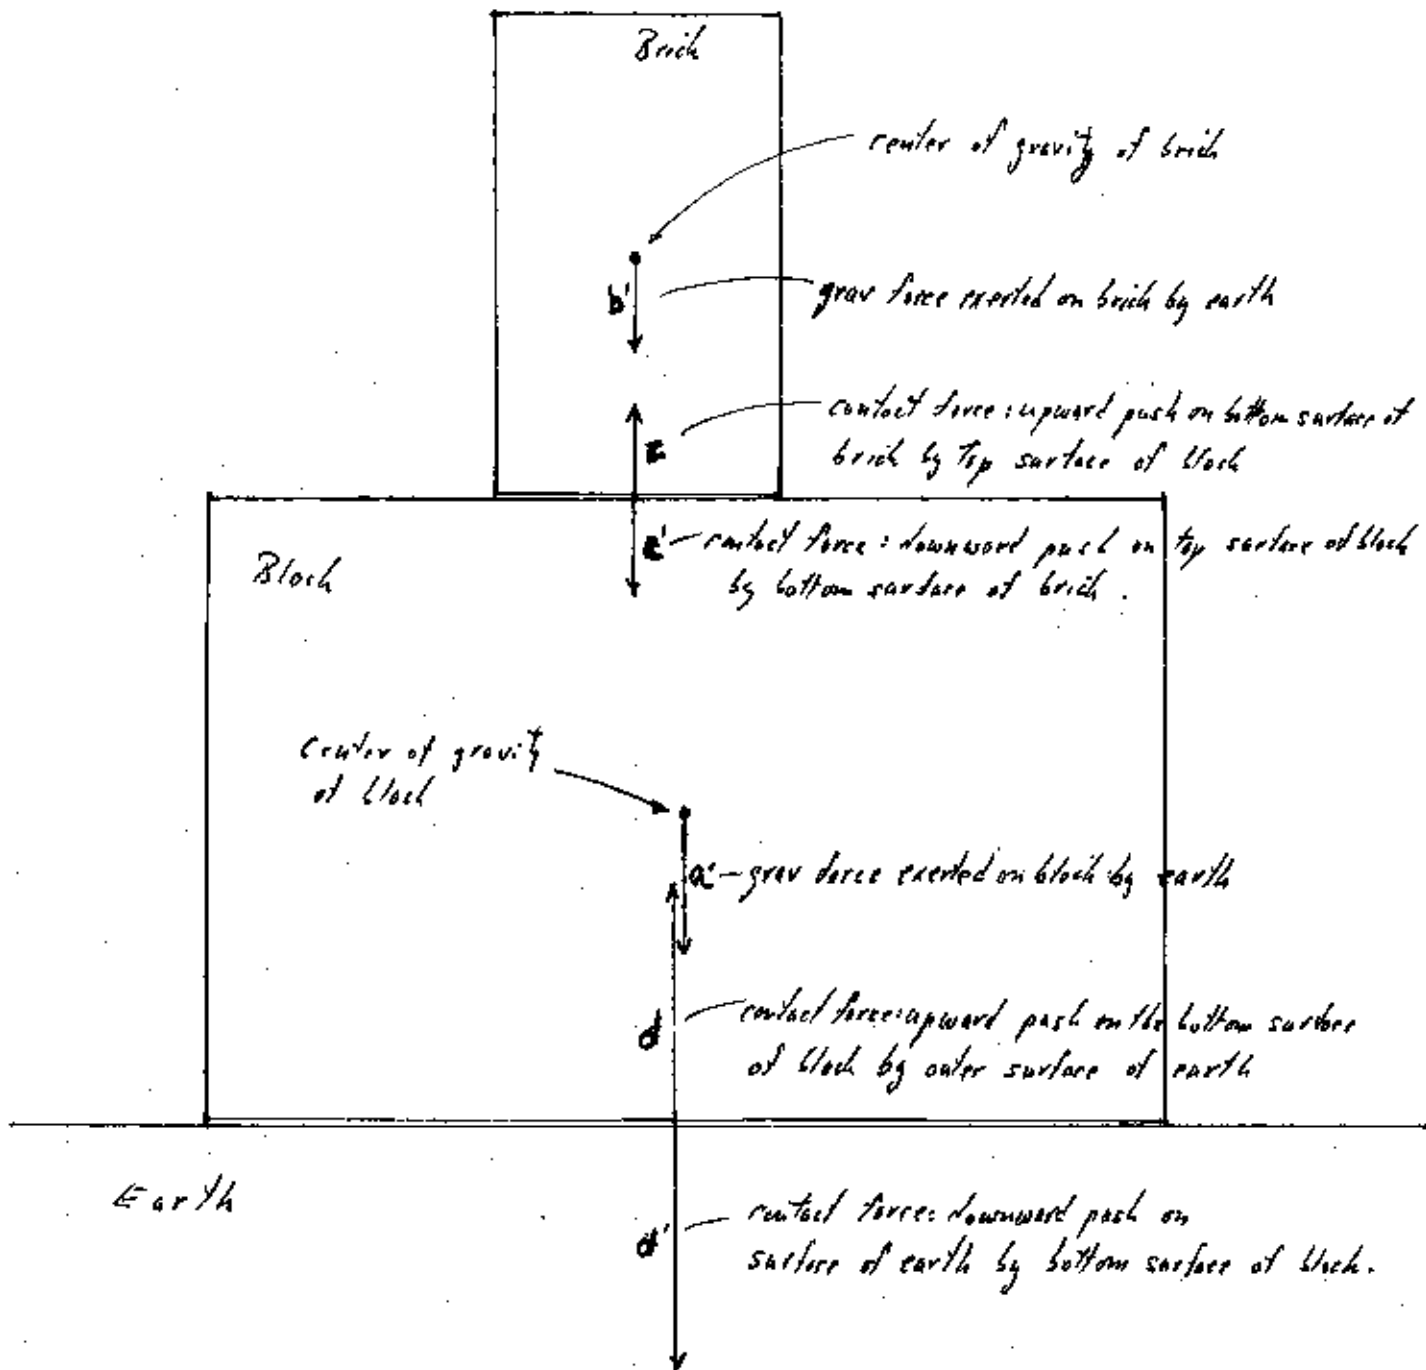 Brick
center of gravity of brick
b'
grav force exerted on brick by earth
contact force: upward push on bottom surface of
brick by top surface of block
c
c'
contact force: downward push on top surface of block
by bottom surface of brick.
Block
Center of gravity
of block
a'
grav force exerted on block by earth
d
contact force: upward push on the bottom surface
of block by outer surface of earth
Earth
d'
contact force: downward push on
surface of earth by bottom surface of block.